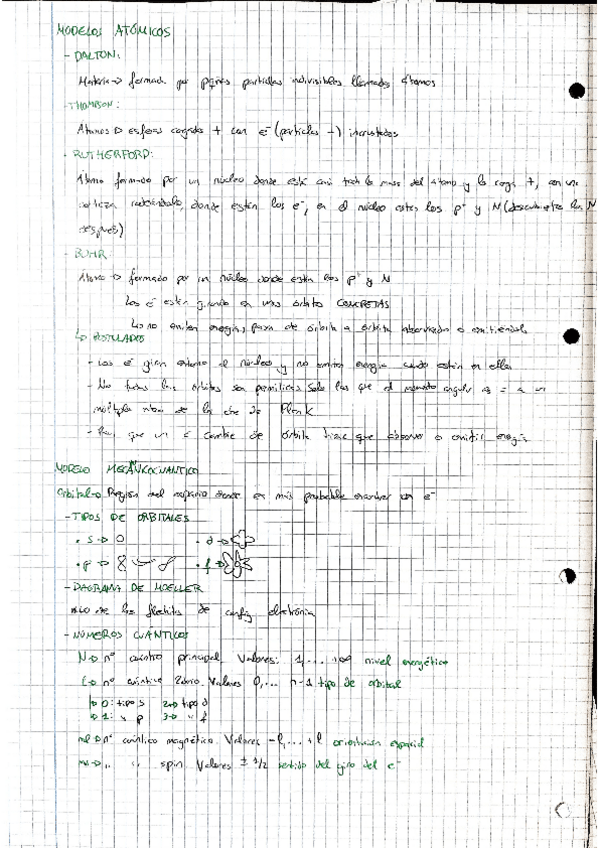 MODELOS ATÓMICOS
- DALTON:
Materia → formada por pqñas partículas indivisibles llamadas átomos
- THOMSON:
Atomos → esferas cargada + con e⁻ (partículas -) incrustados
- RUTHERFORD:
Atomo formado por un núcleo donde está casi toda la masa del átomo y la carga +, con una
corteza rodeándolo, donde están los e⁻, en el núcleo están los p⁺ y N (descubierto los N
después)
- BOHR:
Atomo → formado por un núcleo donde están los p⁺ y N
Los e⁻ están girando en unas órbitas CONCRETAS
Lo no emiten energía, pasan de órbita a órbita absorviendo o emitiendola
↳ POSTULADOS
- Los e⁻ giran entorno al núcleo, y no emiten energía cuando están en ellas
- No todas las órbitas son permitidas, solo las que el momento angular es = a un
múltiplo de la cte de Plank
- Para que un e⁻ cambie de órbita tiene que absorver o emitir energía
MODELO MECANICOCUANTICO
Orbital → Región del espacio donde es más probable encontrar un e⁻
- TIPOS DE ORBITALES
• s → • d →
• p → • f →
- DIAGRAMA DE MOELLER
de las flechitas de config electrónica
- NÚMEROS CUÁNTICOS
N → nº cuántico principal Valores: 1,... +∞ nivel energético
l → nº cuántico 2dario Valores 0,... n-1 tipo de orbital
↳ 0: tipo s 2 → tipo d
↳ 1: " p 3 → " f
ml → nº cuántico magnético Valores -l,... +l orientación espacial
ms → " " spin Valores ± 1/2 sentido del giro del e⁻